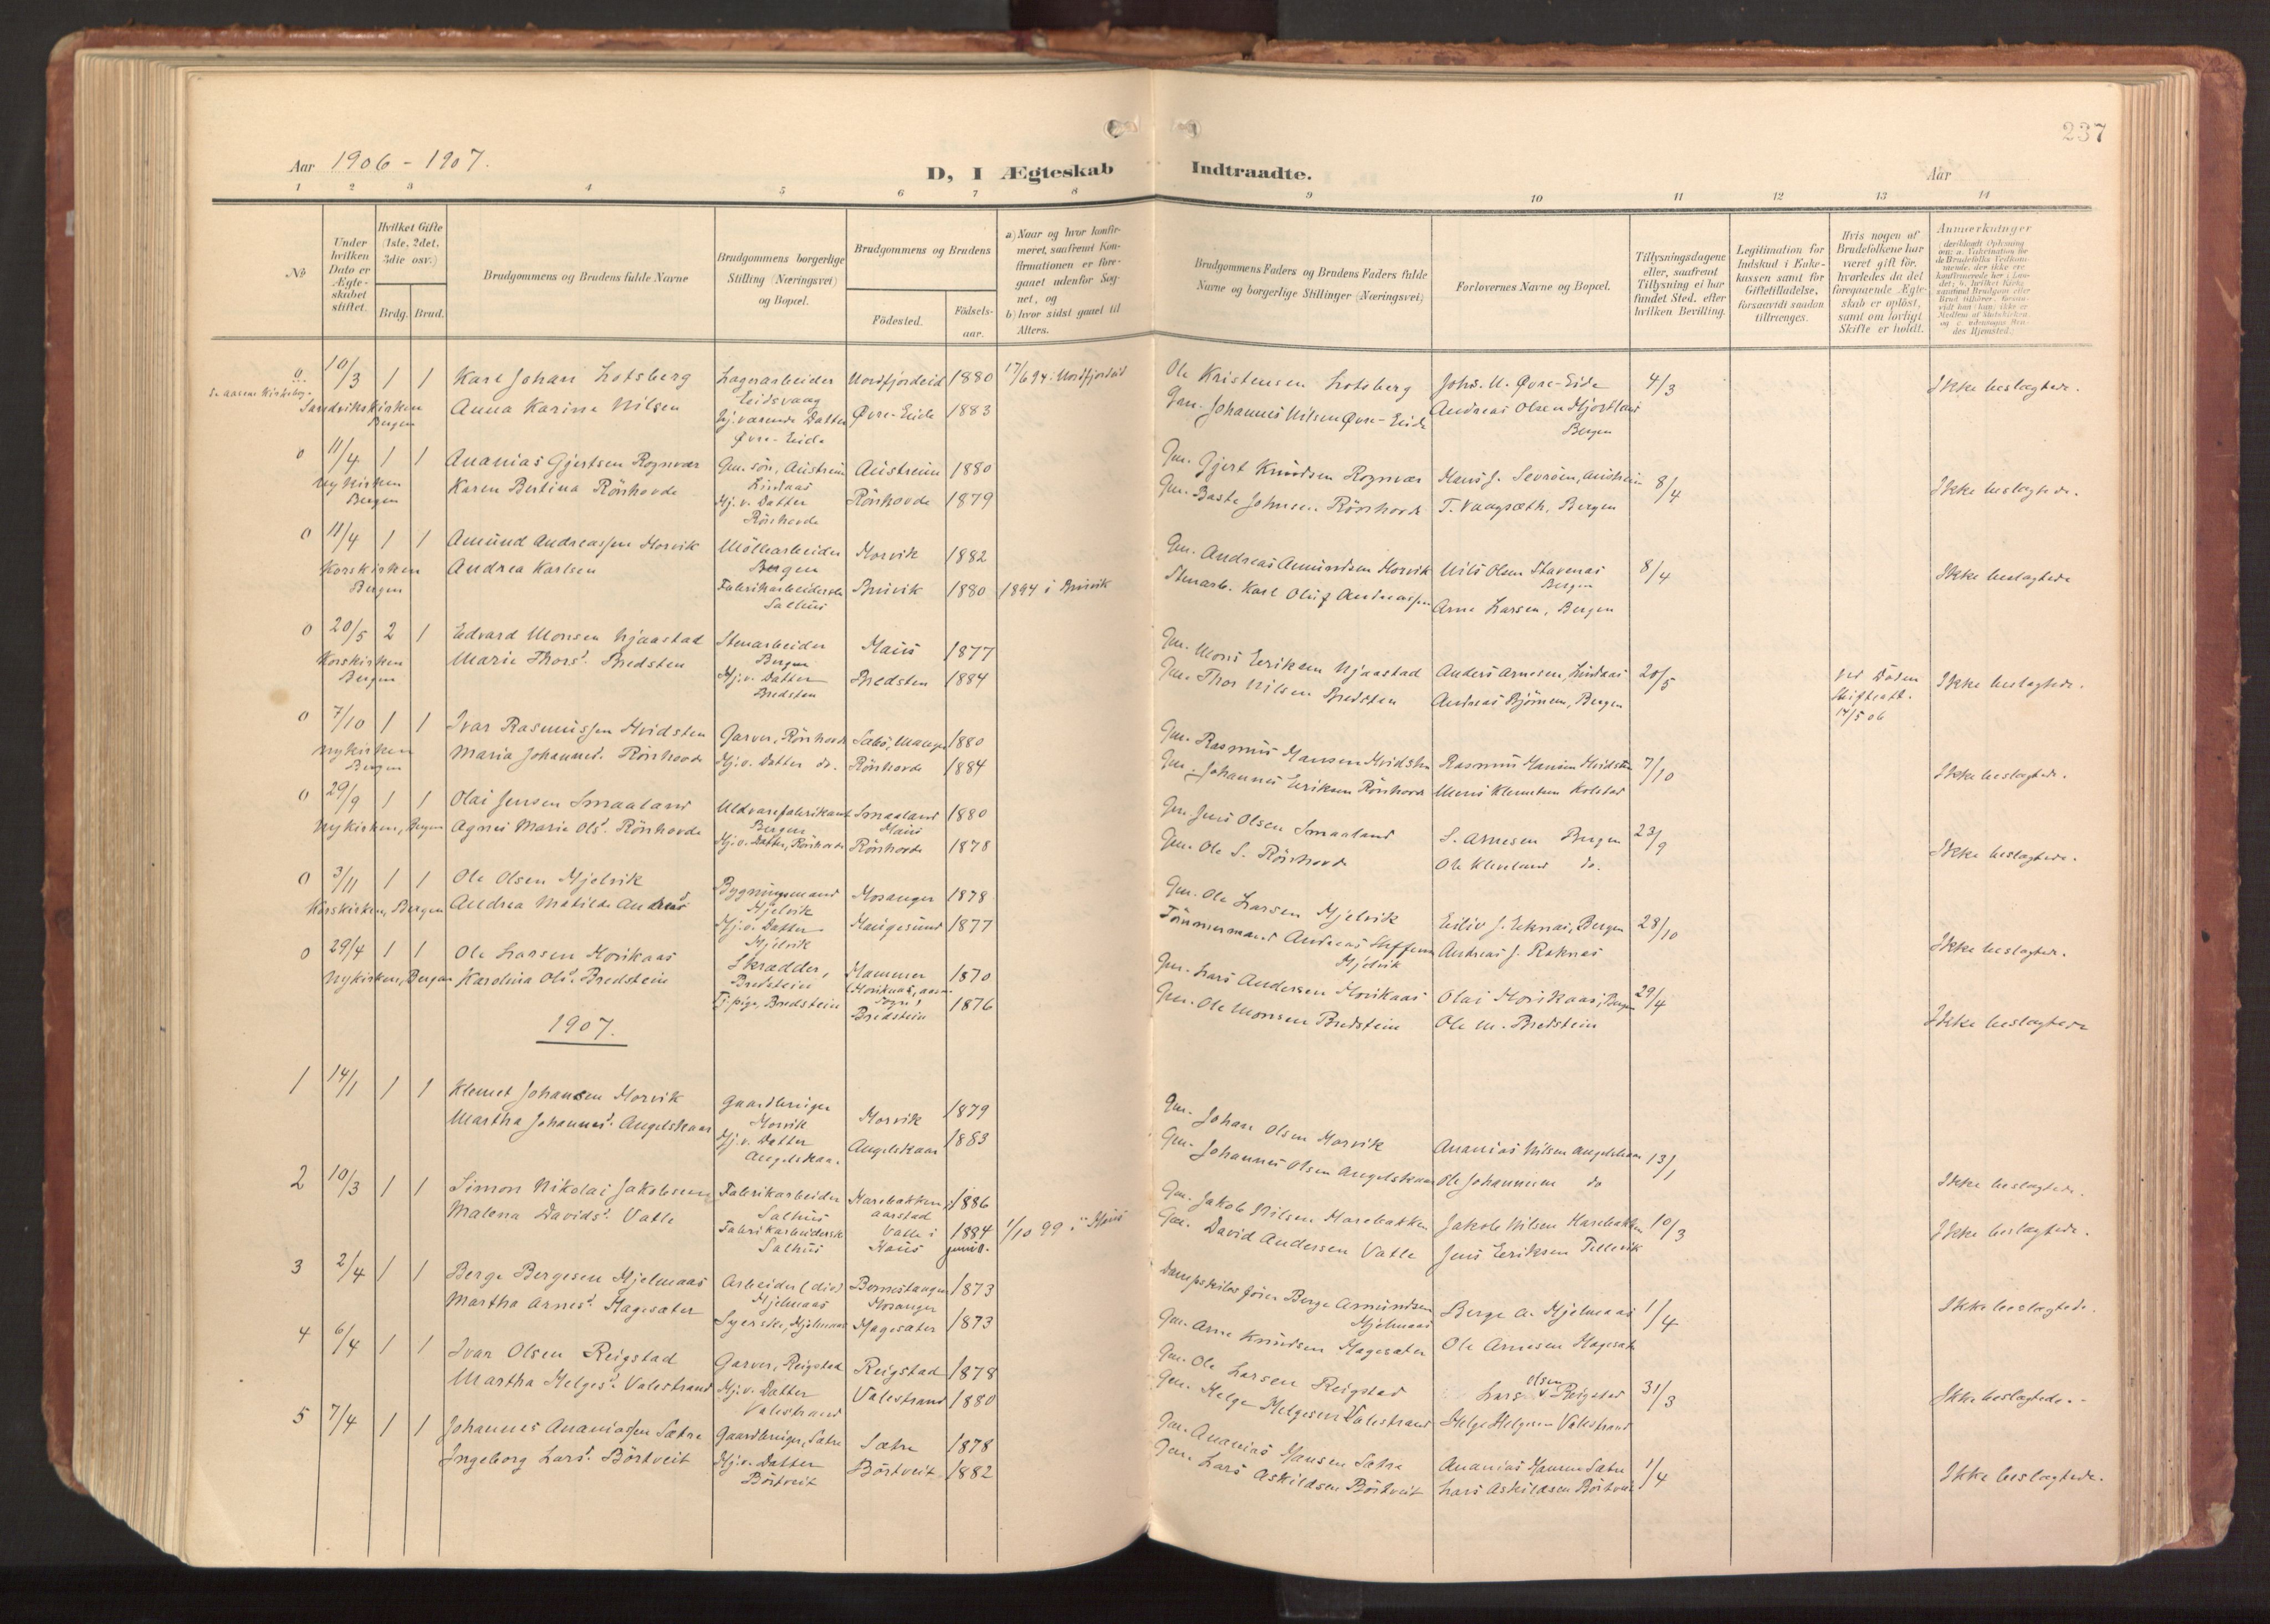 237
Aar 1906 - 1907.
D, I Ægteskab Indtraadte.
Aar
1 2 3 4 5 6 7 8 9 10 11 12 13 14
No
Under hvilken Dato er Ægteskabet stiftet.
Hvilket Gifte (1ste, 2det, 3die osv.)
Brdg. Brud.
Brudgommens og Brudens fulde Navne
Brudgommens borgerlige Stilling (Næringsvei) og Bopæl.
Brudgommens og Brudens
Födested.
Födselsaar.
a) Naar og hvor konfirmeret, saafremt Konfirmationen er foregaaet udenfor Sognet, og
b) hvor sidst gaaet til Alters.
Brudgommens Faders og Brudens Faders fulde Navne og borgerlige Stillinger (Næringsvei)
Forlovernes Navne og Bopæl.
Tillysningsdagene eller, saafremt Tillysning ei har fundet Sted, efter hvilken Bevilling.
Legitimation for Indskud i Enkekassen samt for Giftetilladelse, forsaavidt saadan tiltrænges.
Hvis nogen af Brudefolkene har været gift för, hvorledes da det foregaaende Ægteskab er oplöst, samt om lovligt Skifte er holdt.
Anmærkninger
0 10/3 1 1 Karl Johan Lotsberg Lagerarbeider Eidsvaag Nordfjordeid 1880 17/6 94 Nordfjordeid Ole Kristensen Lotsberg Johs. N. Øvre-Eide 4/3 Ikke beslægtede.
Sandvikskirken Bergen Anna Karine Nilsen Hj.værende Datter Øvre-Eide Øvre-Eide 1883 Gm. Johannes Nilsen Øvre-Eide Andreas Olsen Bergen
0 11/4 1 1 Ananias Gjertsen Rognvær Gm. sön, Austreim Lindaas Austreim 1880 Gm. Gjert Knudsen Rognvær Hans J. 8/4 Ikke beslægtede.
Nykirken Bergen Karen Bertina Rönhovde Hj.v. Datter Rönhovde Rönhovde 1879 Gm. Baste Johnsen Rönhovde T. Vaagsæth, Bergen
0 11/4 1 1 Amund Andreassen Horvik Möllearbeider Bergen Horvik 1882 Gm. Andreas Amundsen Horvik Nils Olsen Stavenas Bergen 8/4 Ikke beslægtede
Korskirken Bergen Andrea Karlsen Salhus Bruvik 1880 1894 i Bruvik Stenarb. Karl Oluf Andreassen Arne Larsen, Bergen
0 20/5 2 1 Edvard Monsen Njaastad Stenarbeider Bergen Haus 1877 Gm. Mons Eriksen Njaastad Anders Arnesen, Lindaas 20/5 ved Döden Skifteatt. 14/5 06 Ikke beslægtede.
Korskirken Bergen Marie Thorsd. Bredsten Hj.v. Datter Bredsten Bredsten 1884 Gm. Thor Nilsen Bredsten Andreas Björnsen, Bergen
0 7/10 1 1 Ivar Rasmussen Hvidsten Garver, Rönhovde Sæbö, Manger 1880 Gm. Rasmus Hansen Hvidsten Rasmus Hansen Hvidsten 7/10 Ikke beslægtede.
Nykirken Bergen Maria Johannesd. Rönhovde Hj.v. Datter do. Rönhovde 1884 Gm. Johannes Eriksen Rönhovde Mons Klemetsen Kolstad
0 29/9 1 1 Olai Jensen Smaaland Uldvarefabrikant Bergen Smaaland Haus 1880 Gm. Jens Olsen Smaaland S. Arnesen Bergen 23/9 Ikke beslægtede.
Nykirken, Bergen Agnes Marie Olsd. Rönhovde Hj.v. Datter, Rönhovde Rönhovde 1878 Gm. Ole S. Rönhovde Ole Kleveland do.
0 3/11 1 1 Ole Olsen Mjelvik Bygningsmand Mjelvik Hosanger 1878 Gm. Ole Larsen Mjelvik Eiliv J. Eknæs, Bergen 28/10 Ikke beslægtede.
Korskirken, Bergen Andrea Matilde Andreasd Hj.v. Datter Mjelvik Haugesund 1877 Tömmermand Andreas Steffensen Mjelvik Andreas J. Raknes
0 29/4 1 1 Ole Larsen Horikaas Skrædder, Bredstein Hammer 1870 Gm. Lars Andersen Horikaas Olai Horikaas, Bergen 29/4 Ikke beslægtede
Nykirken, Bergen Karolina Olsd. Bredstein Tj.pige, Bredstein Bredstein 1876 Gm. Ole Monsen Bredstein Ole M. Bredstein
1907.
1 14/1 1 1 Klemet Johansen Horvik Gaardbruger Horvik Horvik 1879 Gm. Johan Olsen Horvik Ananias Nilsen Angelskaar 13/1 Ikke beslægtede.
Martha Johannesd. Angelskaar Hj.v. Datter Angelskaar Angelskaar 1883 Gm. Johannes Olsen Angelskaar Ole Johannesen do
2 10/3 1 1 Simon Nikolai Jakobsen Fabrikarbeider Salhus Harebakken i Aarstad 1886 Gm. Jakob Nilsen Harebakken Jakob Nilsen Harebakken 10/3 Ikke beslægtede.
Malena Davidsd. Valle Fabrikarbeiderske Salhus Valle i Haus 1884 1/10 99 i Haus Gm. David Andersen Valle Jens Eriksen Tellevik
3 2/4 1 1 Berge Bergesen Hjelmaas Arbeider Hjelmaas Hosanger 1873 Dampskibsförer Berge Amundsen Hjelmaas Berge A. Hjelmaas 1/4 Ikke beslægtede.
Martha Arnesd. Hagesæter Syerske, Hjelmaas Hagesæter 1873 Gm. Arne Knudsen Hagesæter Ole Arnesen Hagesæter
4 6/4 1 1 Ivar Olsen Reigstad Garver, Reigstad Reigstad 1878 Gm. Ole Larsen Reigstad Lars Olsen Reigstad 31/3 Ikke beslægtede.
Martha Helgesd. Valestrand Hj.v. Datter Valestrand Valestrand 1880 Gm. Helge Helgesen Valestrand Helge Helgesen Valestrand
5 7/4 1 1 Johannes Ananiassen Sætre Gaardbruger, Sætre Sætre 1878 Gm. Ananias Hansen Sætre Ananias Hansen Sætre 1/4 Ikke beslægtede.
Ingeborg Larsd. Börtveit Hj.v. Datter Börtveit Börtveit 1882 Gm. Lars Askildsen Börtveit Lars Askildsen Börtveit